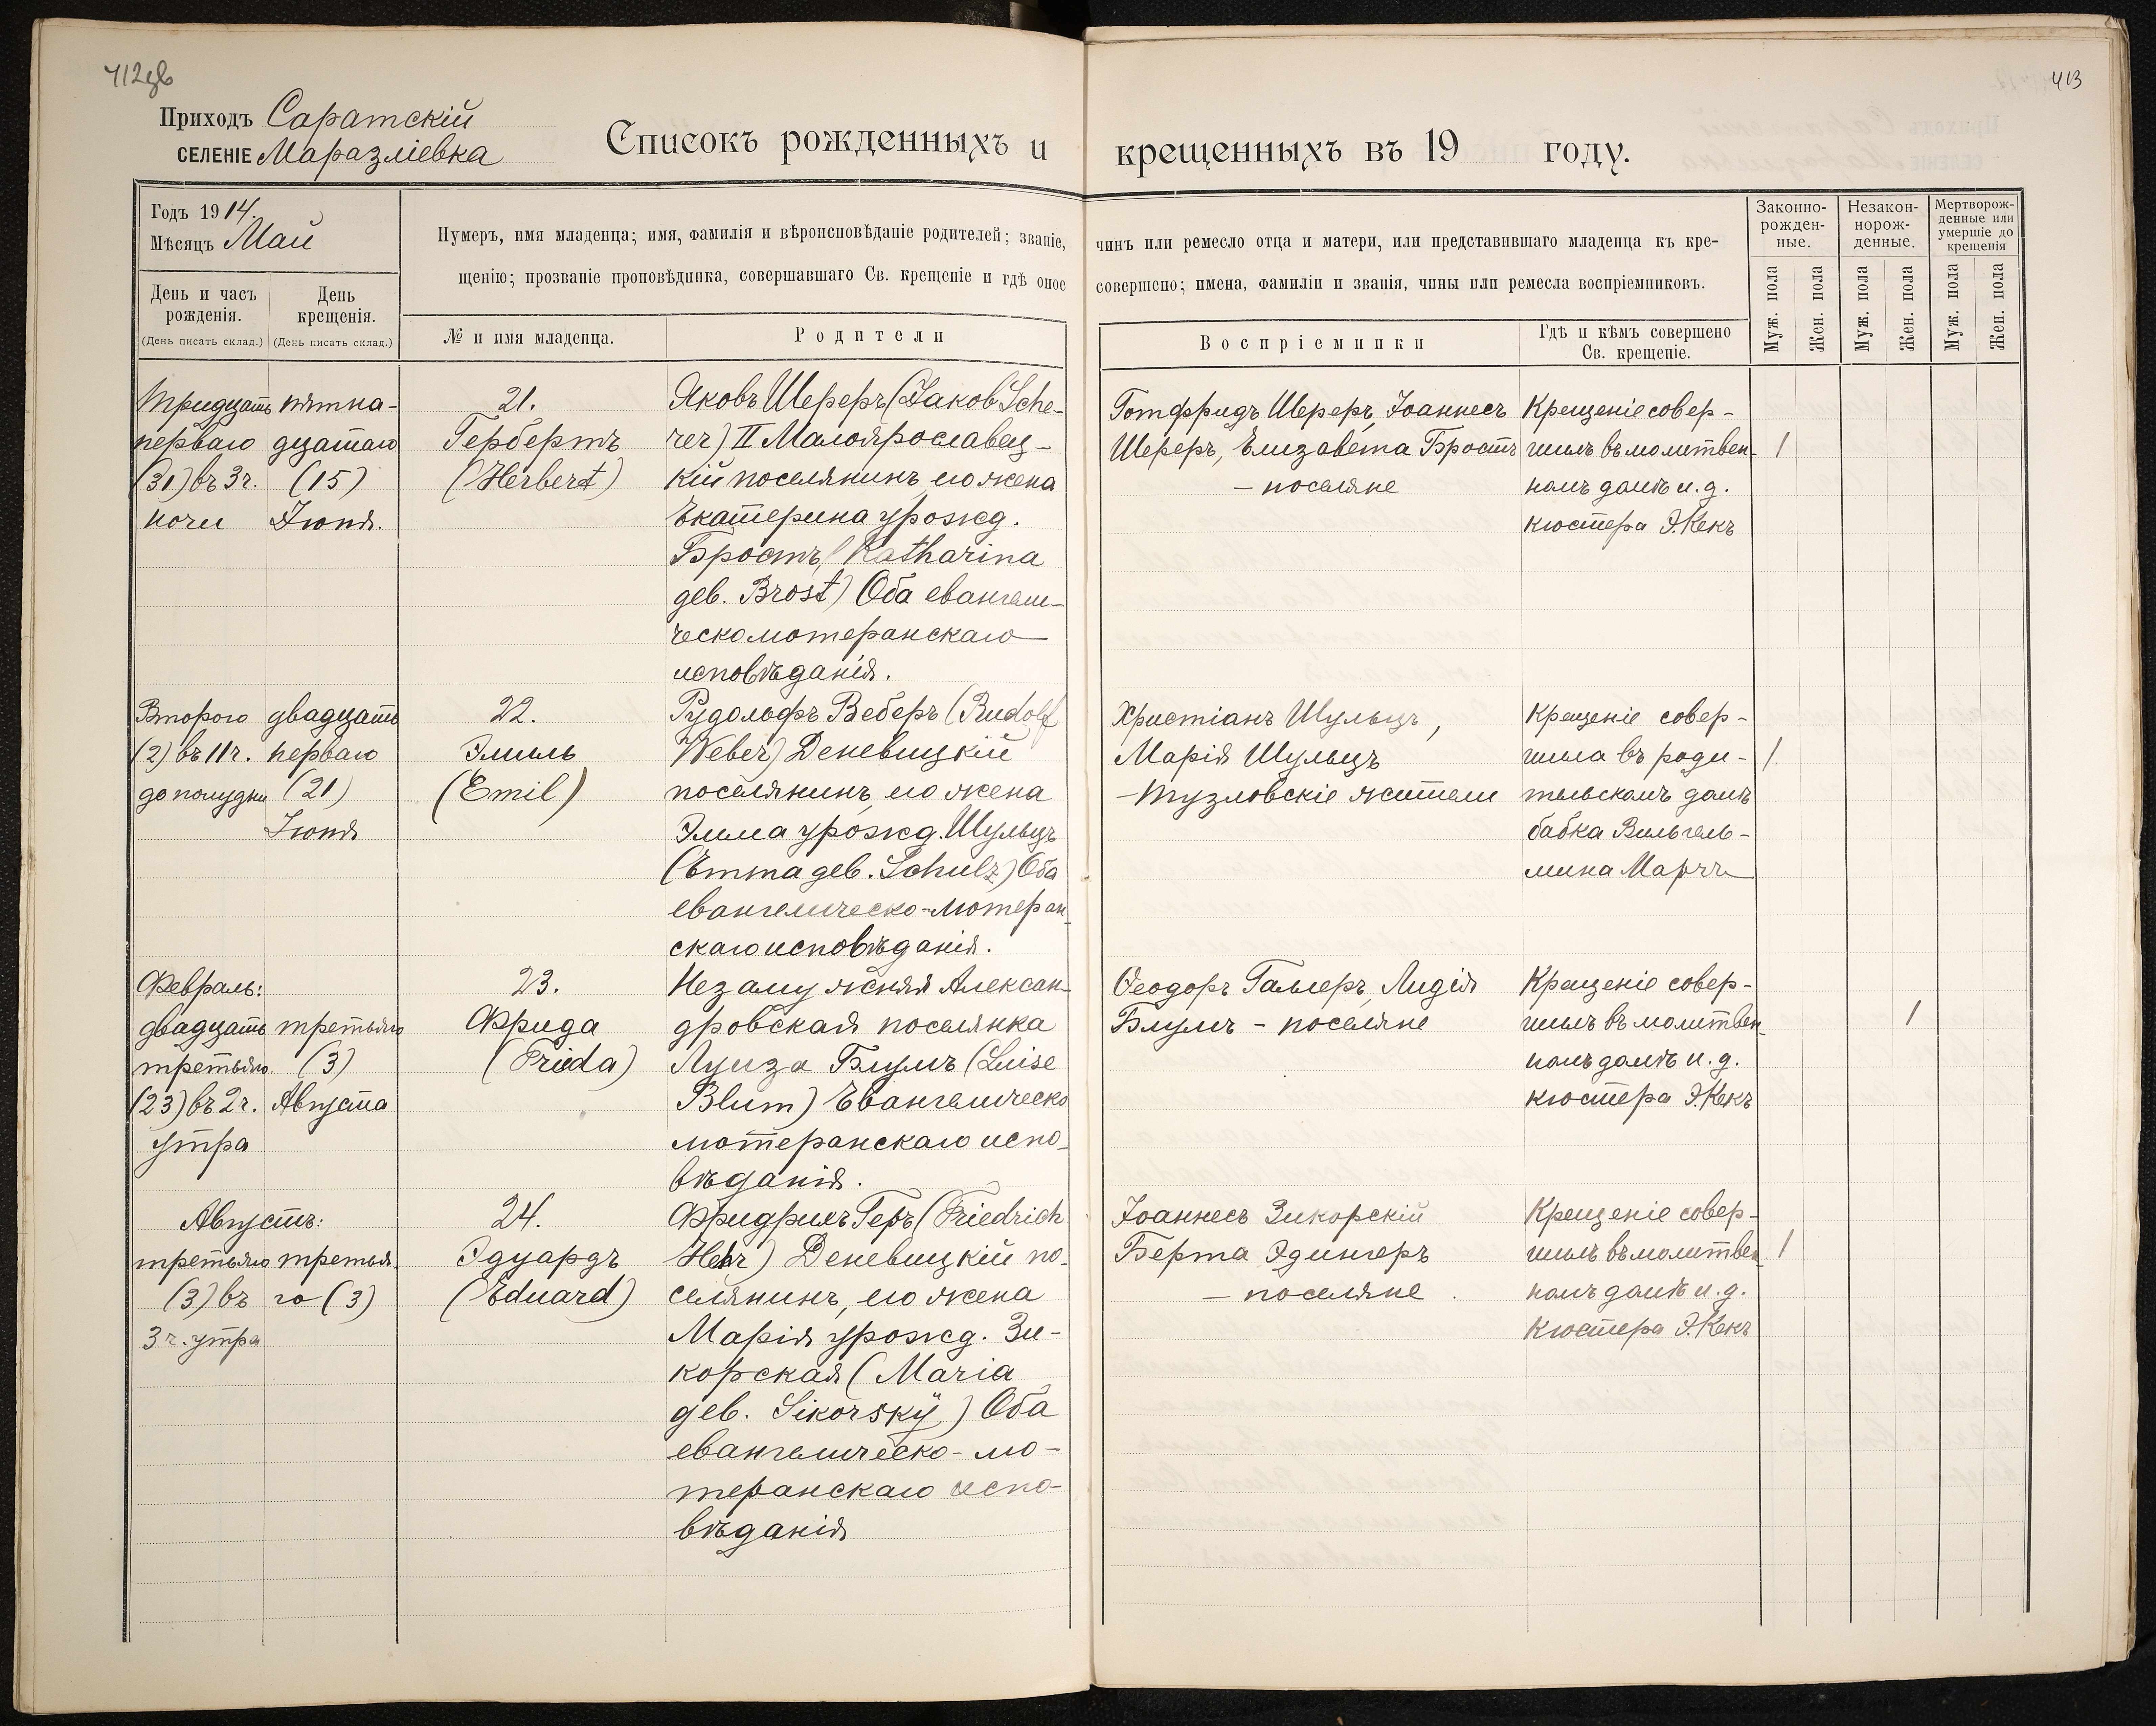 412об
413
Приходъ Саратскій
СЕЛЕНІЕ Маразліевка
Списокъ рожденныхъ и крещенныхъ въ 19 году.
Годъ 1914.
Мѣсяцъ Май
День и часъ рожденія.
(День писать склад.)
День крещенія.
(День писать склад.)
Нумеръ, имя младенца; имя, фамилія и вѣроисповѣданіе родителей; званіе, чинъ или ремесло отца и матери, или представившаго младенца къ кре-
щенію; прозваніе проповѣдника, совершавшаго Св. крещеніе и гдѣ оное совершено; имена, фамиліи и званія, чины или ремесла воспріемниковъ.
№ и имя младенца.
Родители
Воспріемники
Гдѣ и кѣмъ совершено
Св. крещеніе.
Законно-
рожден-
ные.
Незакон-
норож-
денные.
Мертворож-
денные или
умершіе до
крещенія
Муж. пола
Жен. пола
Муж. пола
Жен. пола
Муж. пола
Жен. пола
Тридцать
перваго
(31) въ 3 ч.
ночи
пятна-
дцатаго
(15)
Іюня.
21.
Гербертъ
(Herbert)
Яковъ Шереръ (Jakob Sche-
rer) II Малоярославец-
кій поселянинъ, его жена
Екатерина урожд.
Бростъ (Katharina
geb. Brost) Оба евангели-
ческолютеранскаго
исповѣданія.
Готфридъ Шереръ, Іоаннесъ
Шереръ, Елизавета Бростъ
- поселяне
Крещеніе совер-
шилъ въ молитвен-
номъ домѣ и. д.
кюстера Э. Кекъ
1
Второго
(2) въ 11 ч.
до полудни
двадцать
перваго
(21)
Іюня
22.
Эмиль
(Emil)
Рудольфъ Веберъ (Rudolf
Weber) Деневицкій
поселянинъ, его жена
Эмма урожд. Шульцъ
(Emma geb. Schulz) Оба
евангелическо-лютеран-
скаго исповѣданія.
Христіанъ Шульцъ,
Марія Шульцъ
- Тузловскіе жители
Крещеніе совер-
шила въ роди-
тельскомъ домѣ
бабка Вильгель-
мина Марчъ
1
Февраль:
двадцать
третьяго
(23) въ 2 ч.
утра
третьяго
(3)
Августа
23.
Фрида
(Frieda)
Незамужняя Алексан-
дровская поселянка
Луиза Блумъ (Luise
Blum) Евангелическо
лютеранскаго испо-
вѣданія.
Ѳеодоръ Галлеръ, Лидія
Блумъ - поселяне
Крещеніе совер-
шилъ въ молитвен-
номъ домѣ и. д.
кюстера Э. Кекъ
1
Августъ:
третьяго
(3) въ
3 ч. утра
третья-
го (3)
24.
Эдуардъ
(Eduard)
Фридрихъ Геръ (Friedrich
Hehr) Деневицкій по-
селянинъ, его жена
Марія урожд. Зи-
корская (Maria
geb. Sikorsky) Оба
евангелическо-лю-
теранскаго испо-
вѣданія
Іоаннесъ Зикорскій
Берта Эдингеръ
- поселяне
Крещеніе совер-
шилъ въ молитвен-
номъ домѣ и. д.
Кюстера Э. Кекъ
1